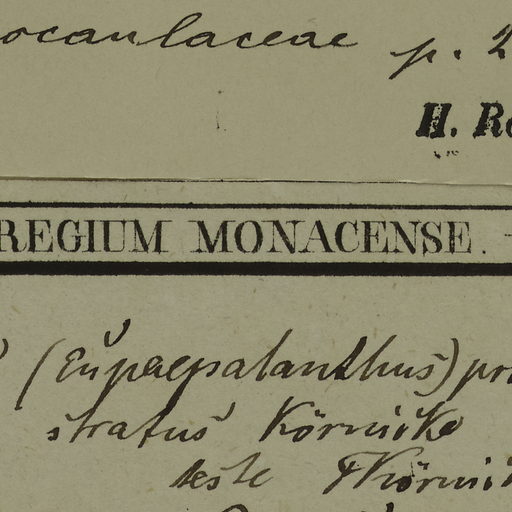 ocaulaceae p. 2
H. Ro
REGIUM MONACENSE.
(Eupaepalanthus) pro
stratus Körnicke
teste Körnic